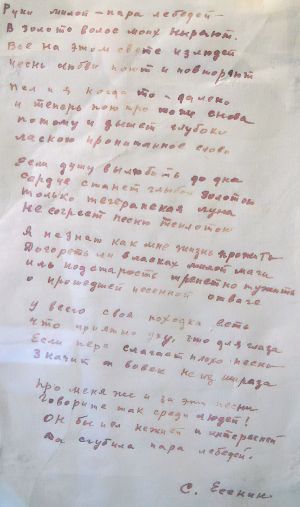 Руки милой - пара лебедей -
В золоте волос моих ныряют.
Все на этом свете из людей
песнь любви поют и повторяют
Пел и я когда то - далеко
и теперь пою про тоже снова
потому и дышет глубоко
ласкою пропитанное слово
Если душу вылюбить до дна
сердце станет глыбой золотою
только тегеранская луна
Не согреет песни теплотою
Я не знаю как мне жизнь прожить
Догореть ли в ласках милой шаги
иль под старость трепетно тужить
о прошедшей песенной отваге
У всего своя походка есть
что приятно уху, что для глаза
Если перс слагает плохо песнь
Значит он вовек не из шираза
Про меня же и за эти песни
говорите так среди людей!
Он бы пел нежней и интересней
Да сгубила пара лебедей.
С. Есенин